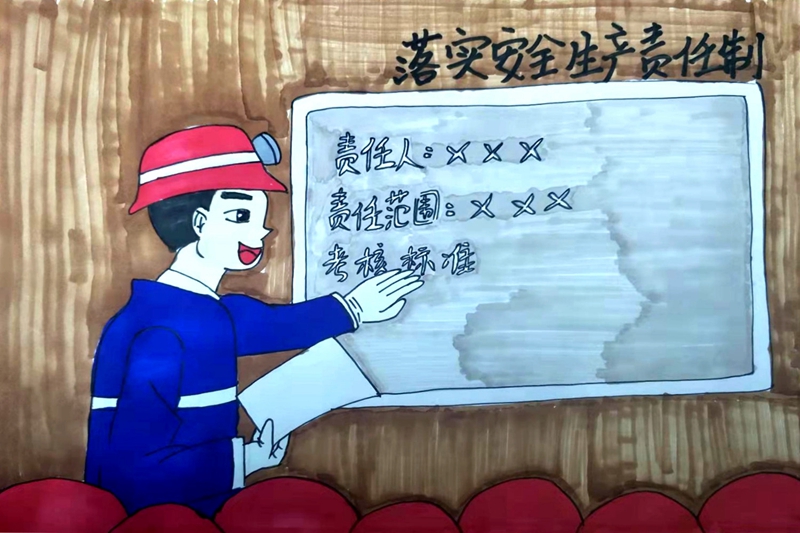 落实安全生产责任制
责任人：×××
责任范围：×××
考核标准